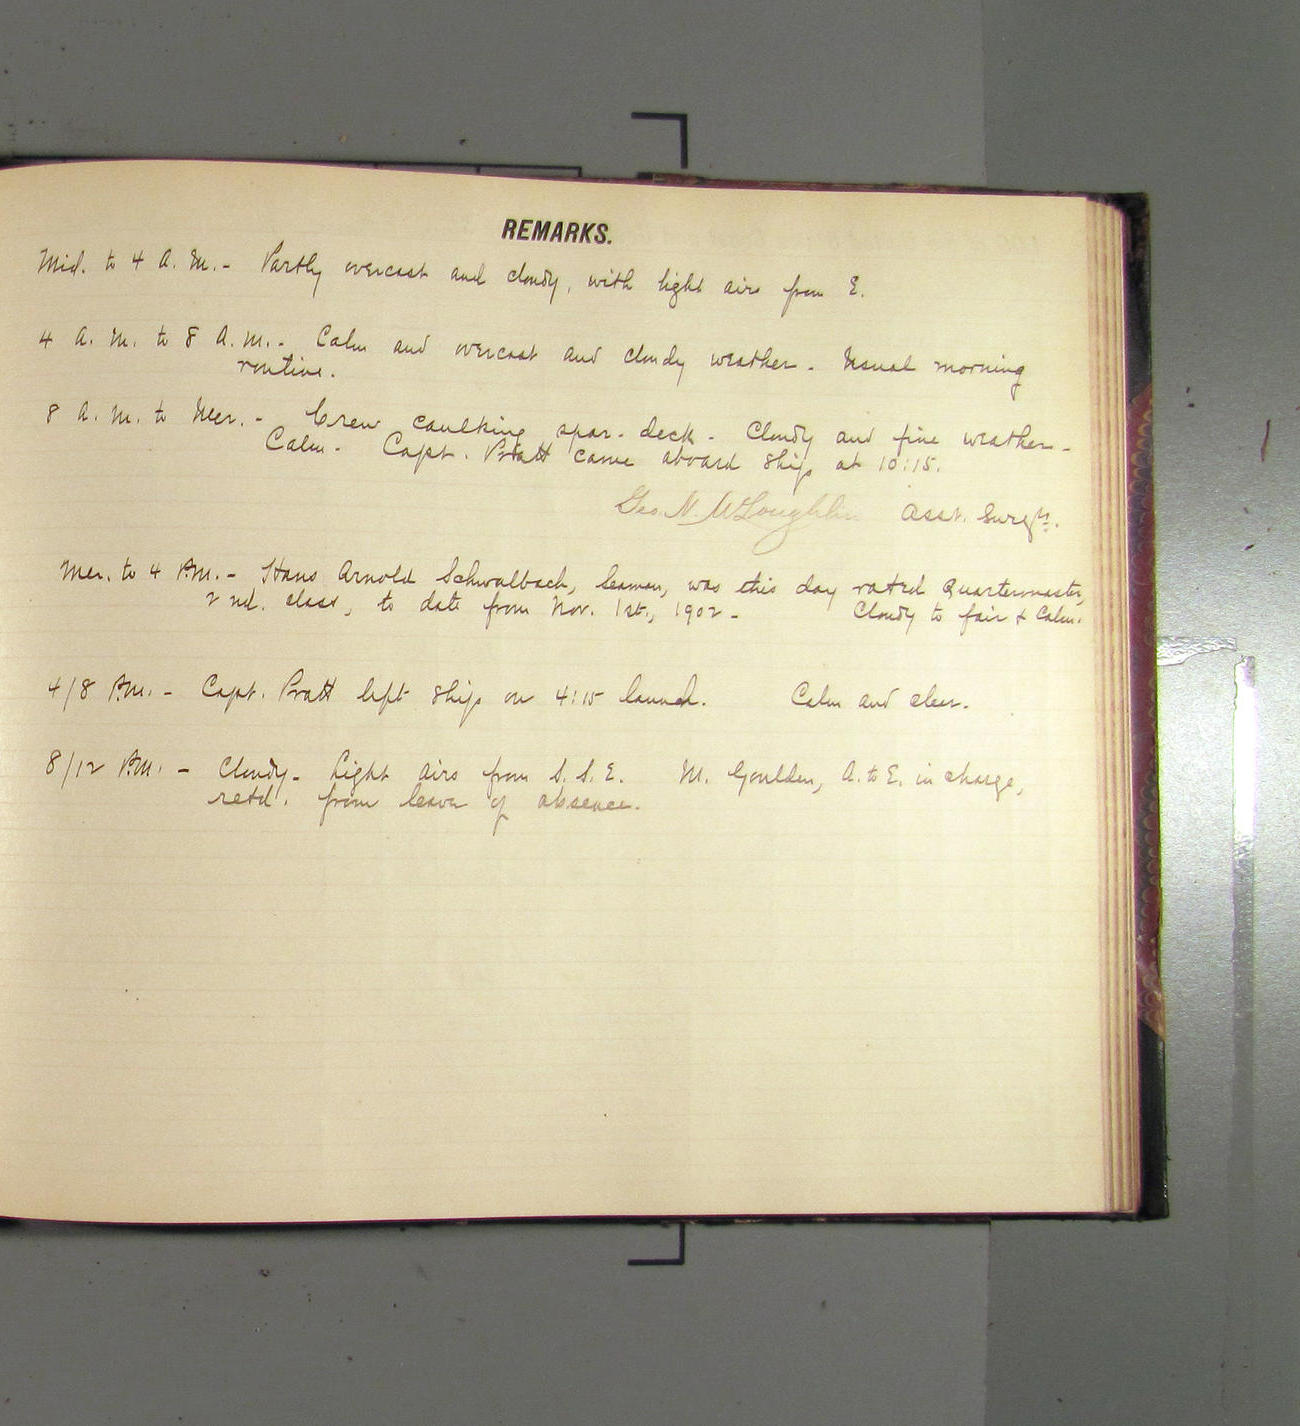 REMARKS.
Mid. to 4 A. M. - Partly overcast and cloudy, with light airs from E.
4 A. M. to 8 A. M. - Calm and overcast and cloudy weather. Usual morning
routine.
8 A. M. to Mer. - Crew caulking spar-deck. Cloudy and fine weather -
Calm. Capt. Pratt came aboard ship at 10:15.
Geo. N. McLoughlin Asst. Surgn.
Mer. to 4 P.M. - Hans Arnold Schwalbach, Seaman, was this day rated Quartermaster,
2nd. class, to date from Nov. 1st., 1902 - Cloudy to fair & Calm.
4/8 P.M. - Capt. Pratt left ship on 4:15 launch. Calm and clear.
8/12 P.M. - Cloudy - Light airs from S. S. E. M. Goulden, A. to E. in charge,
retd. from leave of absence.